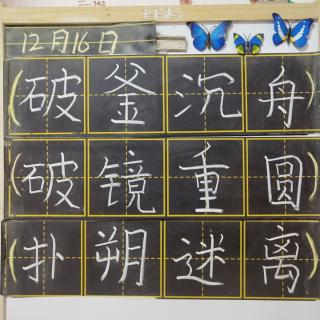 12月16日
(破釜沉舟)
(破镜重圆)
(扑朔迷离)